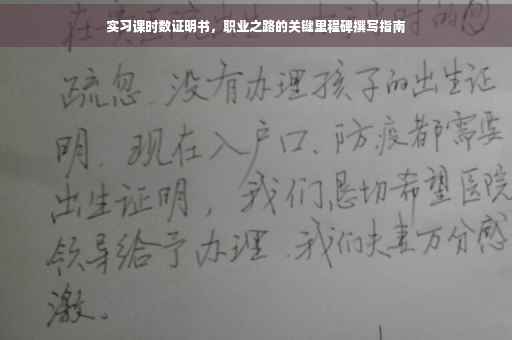 实习课时数证明书，职业之路的关键里程碑撰写指南
疏忽、没有办理孩子的出生证
明、现在入户口、防疫都需要
出生证明，我们恳切希望医院
领导给予办理、我们夫妻万分感
激。